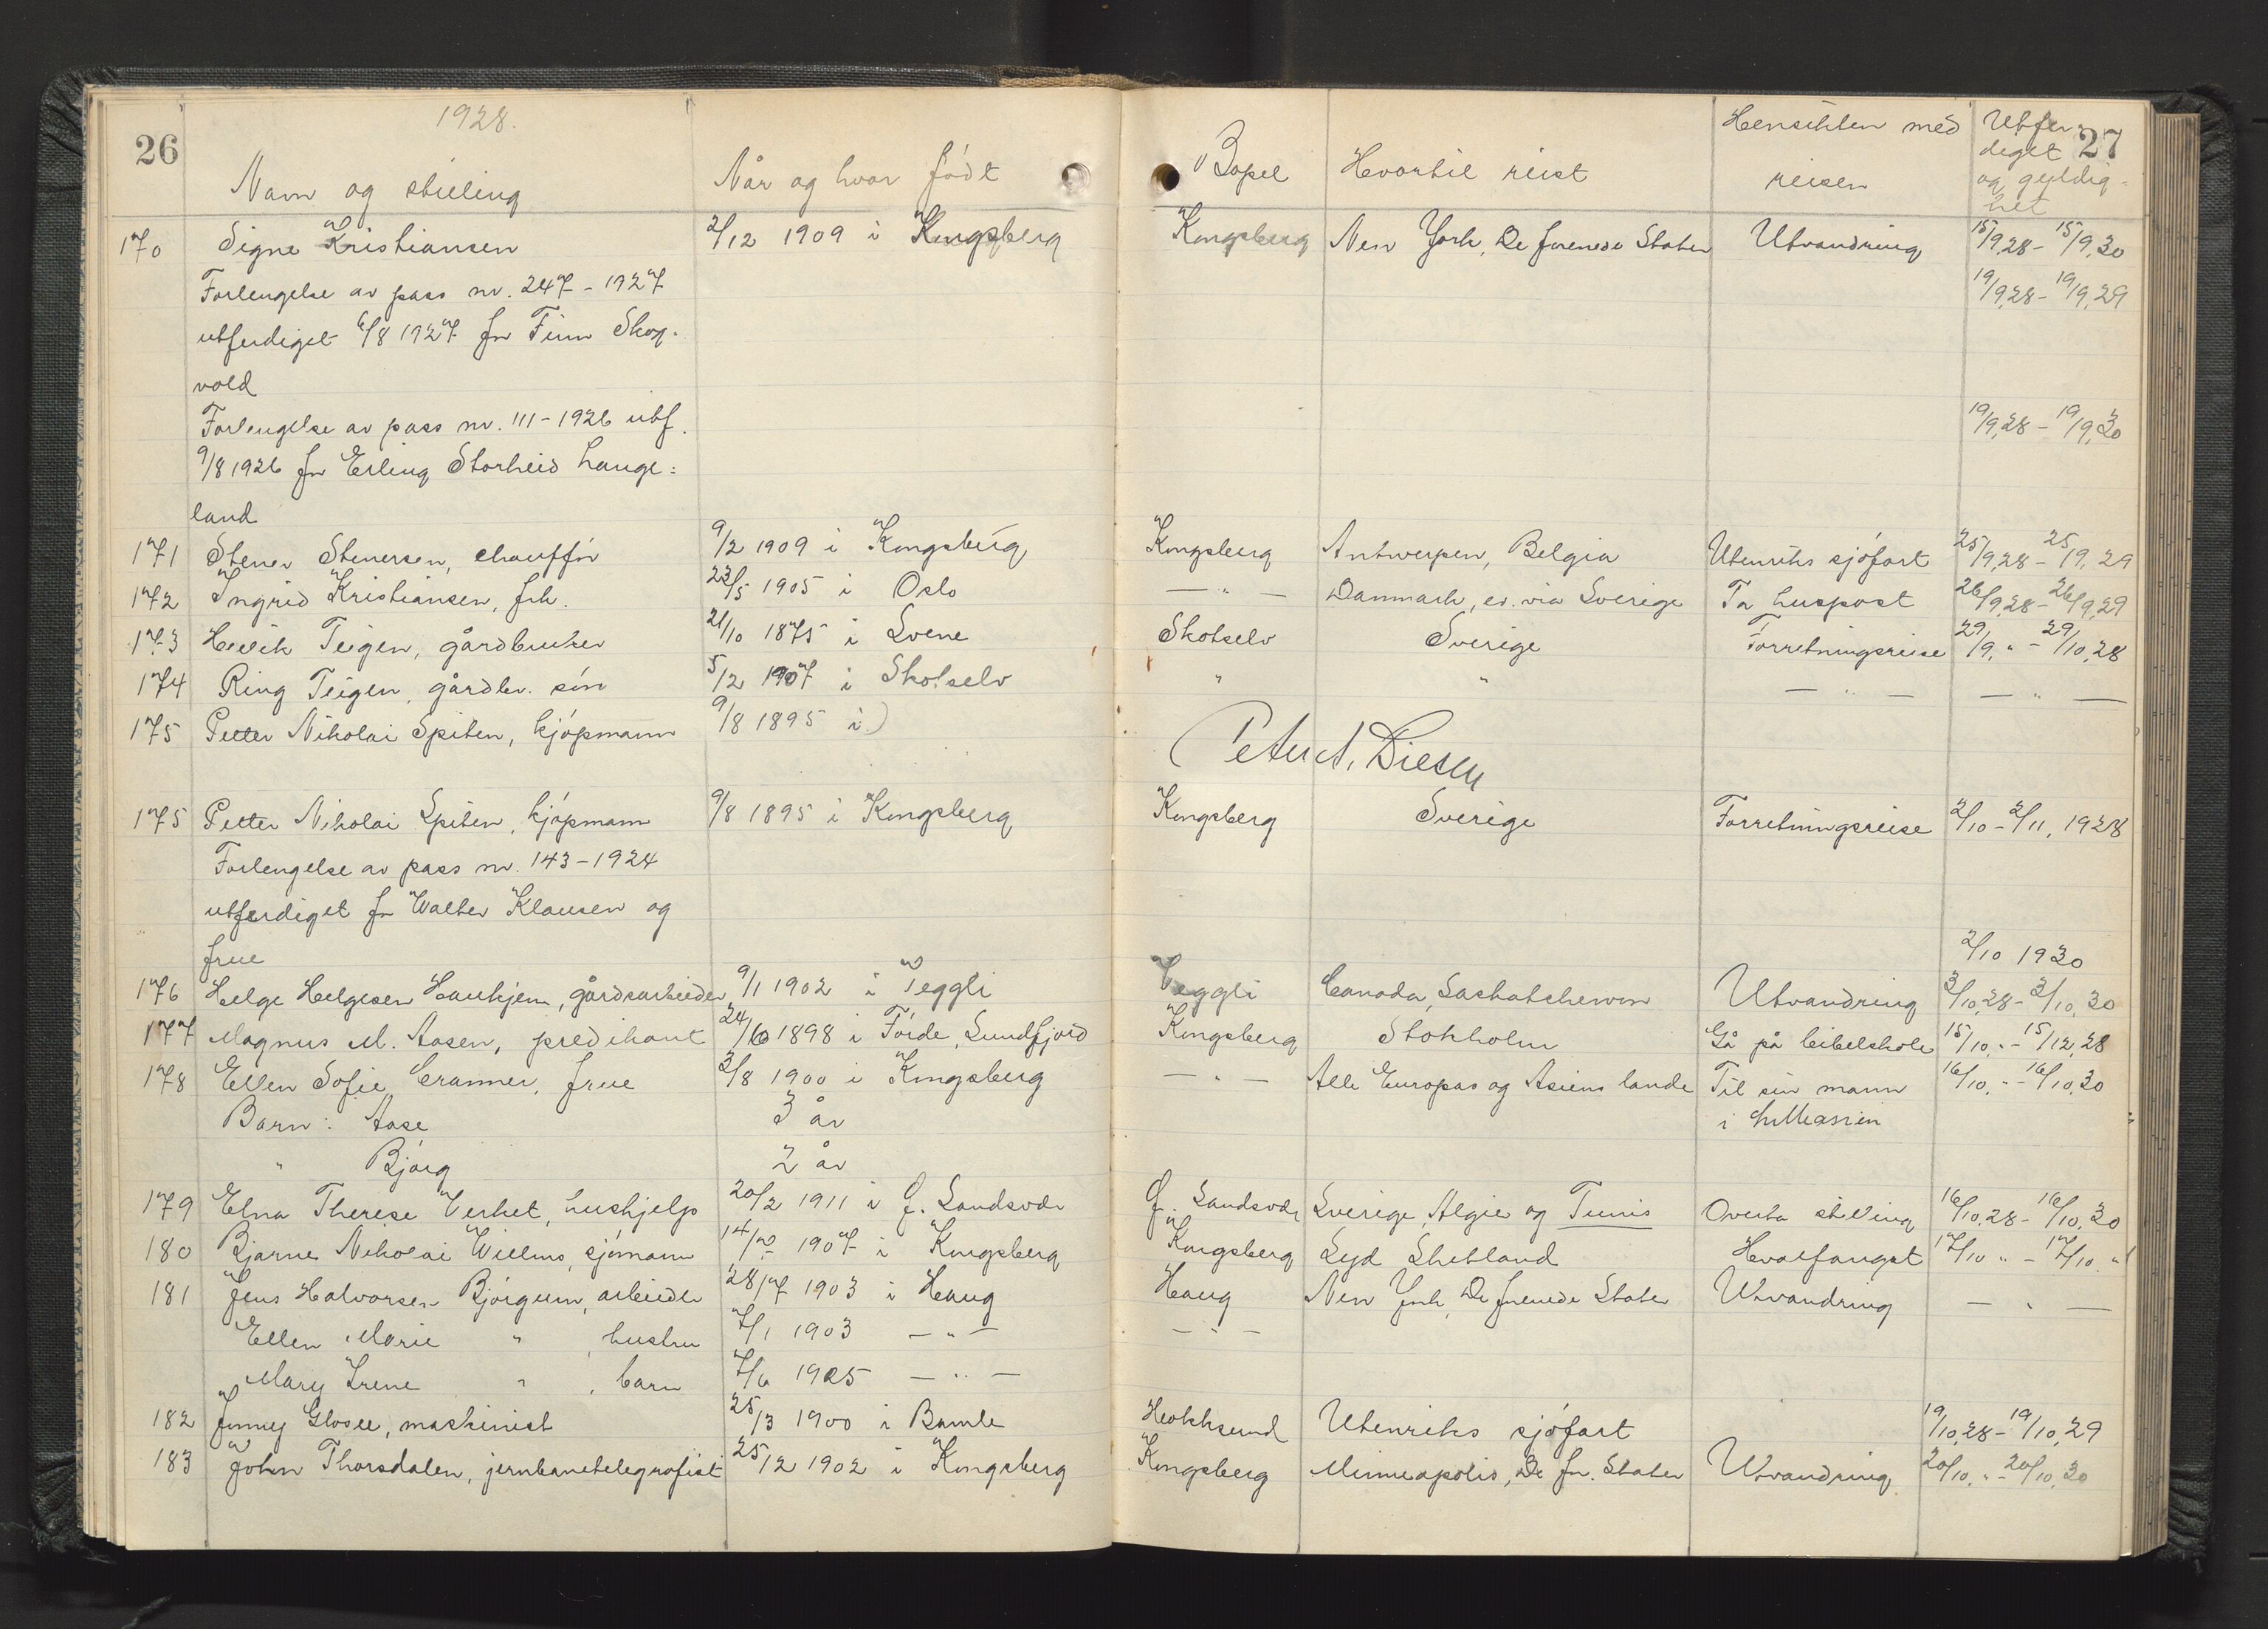 26 1928. 27
Navn og stilling Når og hvor født Bopel Hvortil reist Hensikten med reisen Utferdiget og gyldighet
170 Signe Kristiansen 2/12 1909 i Kongsberg Kongsberg New York, De forenede Stater Utvandring 15/9.28 - 15/9.30
Forlengelse av pass nr. 247 - 1927 19/9.28 - 19/9.29
utferdiget 6/8 1927 for Finn Skog-
vold
Forlengelse av pass nr. 111 - 1926 utf. 19/9.28 - 19/9.30
9/8 1926 for Erling Storheid Lange=
land
171 Stener Stenersen, chauffør 9/2 1909 i Kongsberg Kongsberg Antwerpen, Belgia Utenriks sjøfart 25/9.28 - 25/9.29
172 Ingrid Kristiansen, frk. 23/5 1905 i Oslo — " — Danmark, ev. via Sverige Ta huspost 26/9.28 - 26/9.29
173 Helik Teigen, gårdbruker 21/10 1875 i Svene Skotselv Sverige Forretningsreise 29/9. " - 29/10.28
174 Ring Teigen, gårdbr. søn 5/12 1907 i Skotselv " " — " — — " —
175 Petter Nikolai Spiten, kjøpmann 9/8 1895 i)
Peter A. Diesen
175 Petter Nikolai Spiten, kjøpmann 9/8 1895 i Kongsberg Kongsberg Sverige Forretningsreise 2/10 - 2/11, 1928
Forlengelse av pass nr. 143 - 1924
utferdiget for Walter Klausen og
frue 2/10 1930
176 Helge Helgesen Haukjem, gårdsarbeider 9/1 1902 i Veggli Veggli Canada, Saskatchewan Utvandring 3/10.28 - 3/10.30
177 Magnus M. Aasen, predikant 24/10 1898 i Førde, Sundfjord Kongsberg Stokholm Gå på bibelskole 15/10. " - 15/12.28
178 Ellen Sofie Cranner, frue 3/8 1900 i Kongsberg — " — Alle Europas og Asiens lande Til sin mann 16/10. " - 16/10.30
Barn: Aase 3 år i Lilleasien
" Bjørg 2 år
179 Elna Therese Verket, hushjelp 20/2 1911 i Y. Sandsvær Y. Sandsvær Sverige, Algie og Tunis Overta stilling 16/10.28 - 16/10.30
180 Bjarne Nikolai Willms, sjømann 1907 i Kongsberg Kongsberg Syd Shetland Hvalfangst 17/10 " - 17/10. "
181 Jens Halvorsen Bjørgum, arbeider 28/7 1903 i Haug Haug New York, De forenede Stater Utvandring — " —
Ellen Marie " , hustru 7/1 1903 — " — — " —
Mary Irene " , barn 7/6 1925 — " —
182 Jonny Glosli, maskinist 25/3 1900 i Bamle Hokksund Utenriks sjøfart 19/10.28 - 19/10.29
183 John Thorsdalen, jernbanetelegrafist 25/12 1902 i Kongsberg Kongsberg Minneapolis, De for. Stater Utvandring 20/10. " - 20/10.30